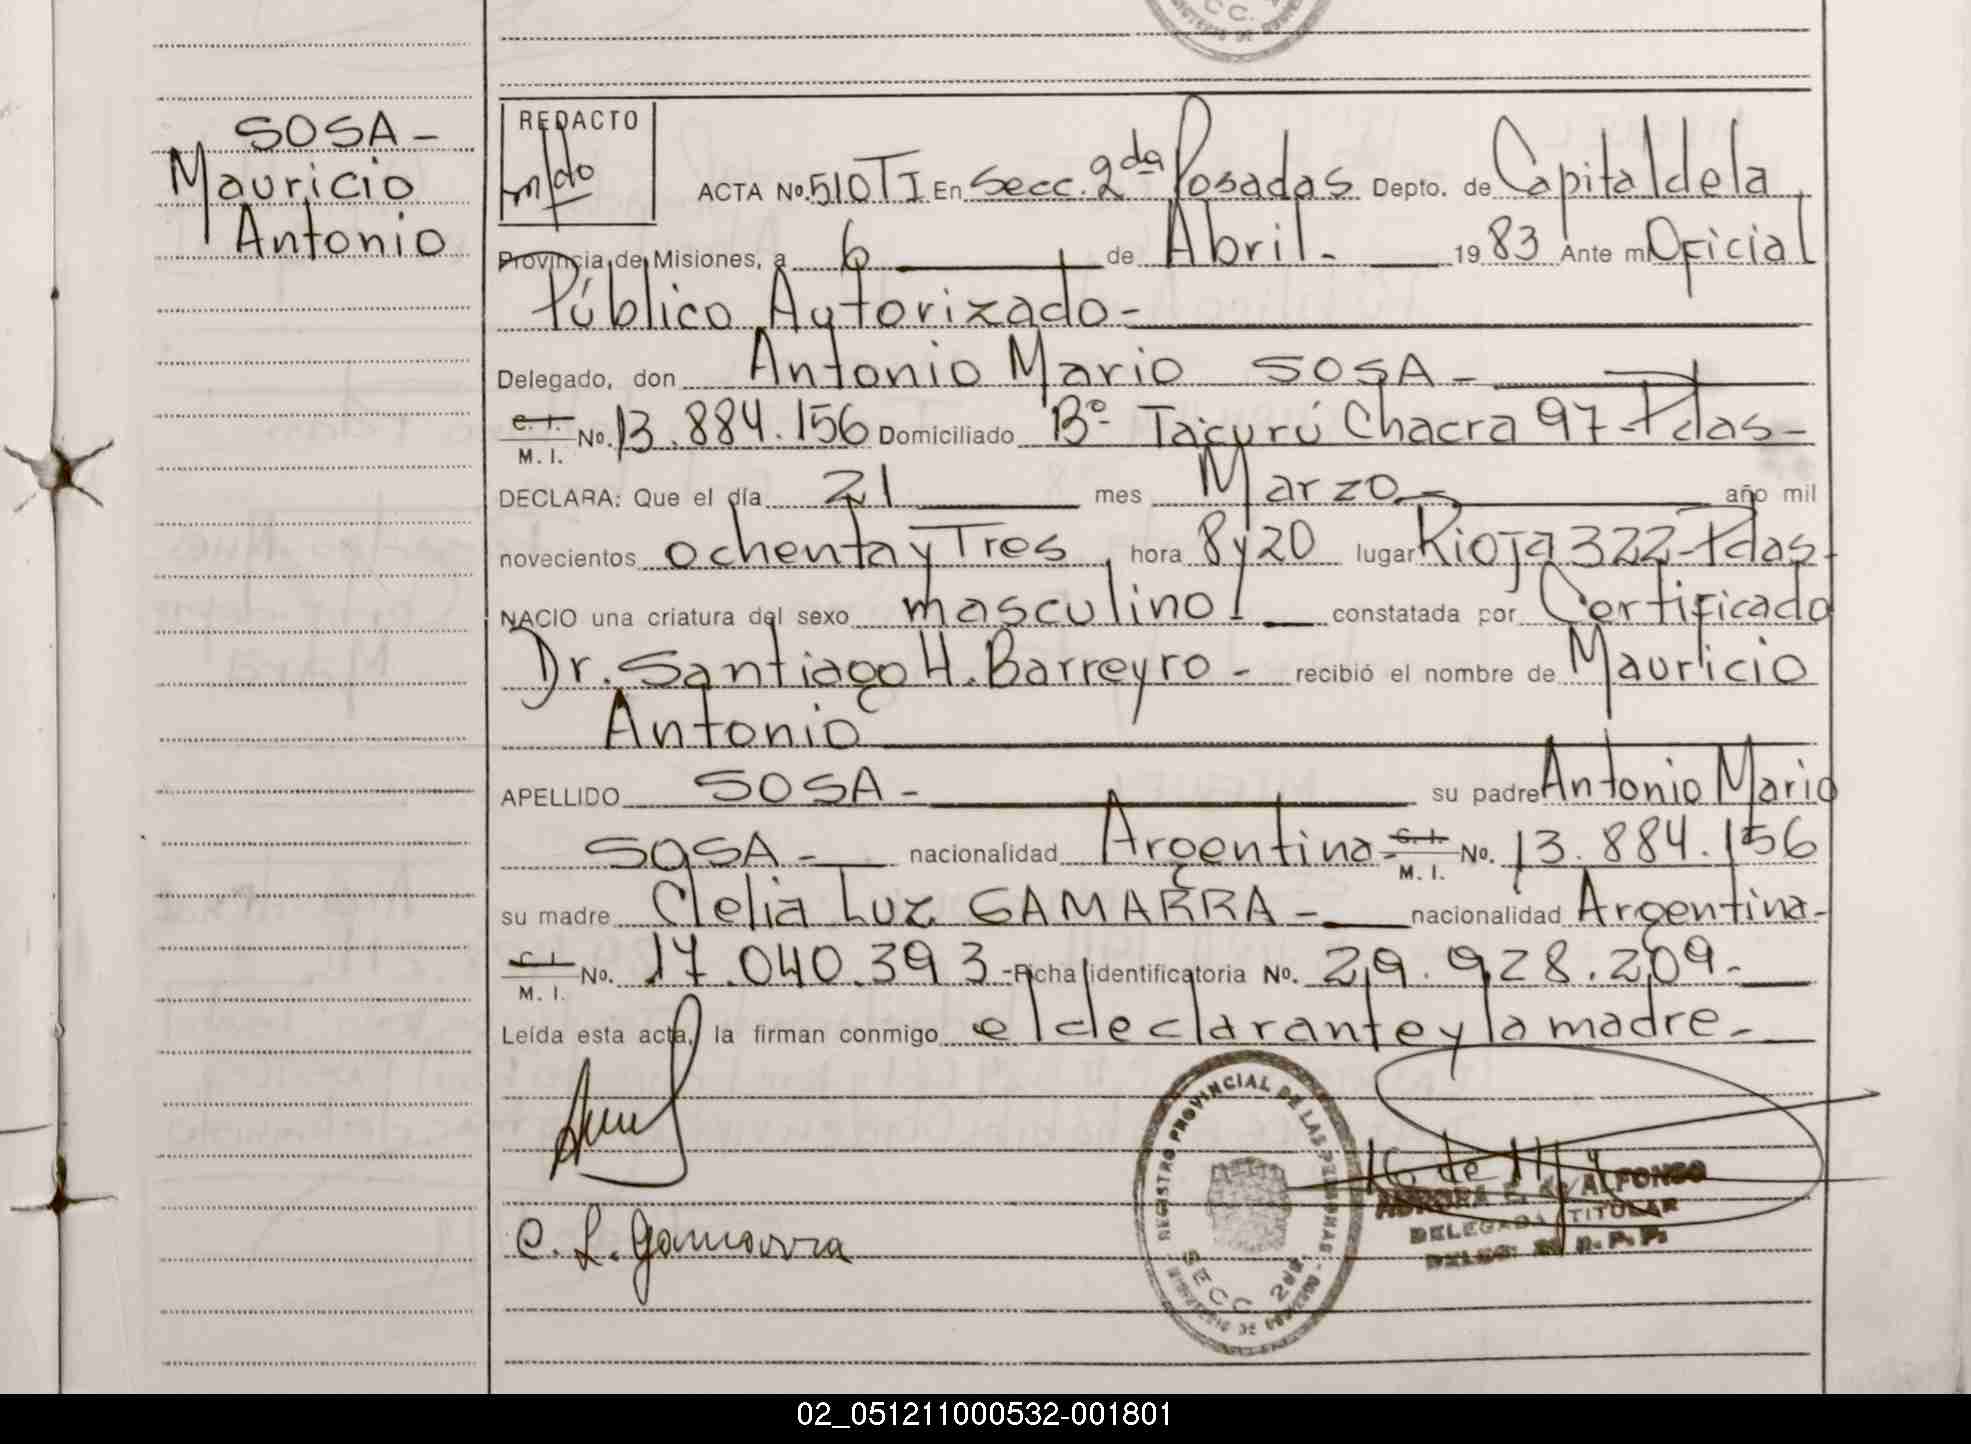 SOSA-
Mauricio
Antonio
REDACTO
ACTA Nº. 510 TI En Secc. 2da Posadas Depto. de Capital de la
Provincia de Misiones, a 6 de Abril.- 1983 Ante mi Oficial
Público Autorizado-
Delegado, don Antonio Mario SOSA-
C. I.
M. I. No. 13.884.156 Domiciliado Bº Tacurú Chacra 97-Pdas-
DECLARA: Que el día 21 mes Marzo- año mil
novecientos ochenta y Tres hora 8 y 20 lugar Rioja 322-Pdas-
NACIO una criatura del sexo masculino constatada por Certificado
Dr. Santiago H. Barreyro- recibió el nombre de Mauricio
Antonio
APELLIDO SOSA- su padre Antonio Mario
SOSA- nacionalidad Argentina- C. I.
M. I. No. 13.884.156
su madre Clelia Luz GAMARRA- nacionalidad Argentina-
C. I.
M. I. No. 17.040.393-Ficha identificatoria No. 29.928.209-
Leída esta acta, la firman conmigo el declarante y la madre-
REGISTRO PROVINCIAL DE LAS PERSONAS
SECC. 2da.
MINISTERIO DE GOBIERNO
ALFONSO
DELEGADA TITULAR
C. L. Gamarra
02_051211000532-001801